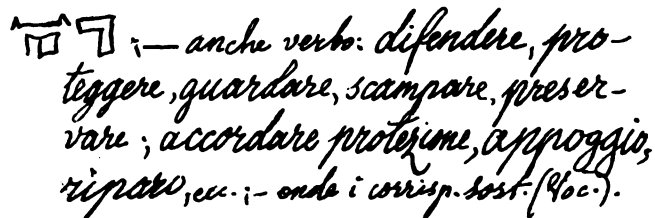 ;— anche verbo: difendere, pro-
teggere, guardare, scampare, preser-
vare; accordare protezione, appoggio,
riparo, ecc.;- onde i corrisp. sost. (Voc.).